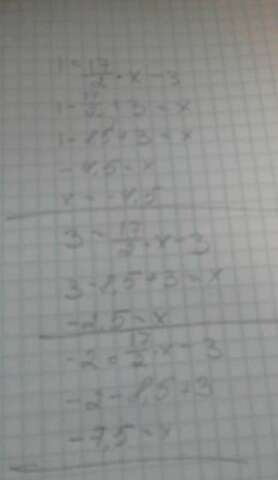 1 = 17/2 · x - 3
1 - 17/2 + 3 = x
1 - 8,5 + 3 = x
-4,5 = x
x = -4,5
3 = 17/2 · x - 3
3 - 8,5 + 3 = x
-2,5 = x
-2 = 17/2 · x - 3
-2 - 8,5 + 3
-7,5 = x